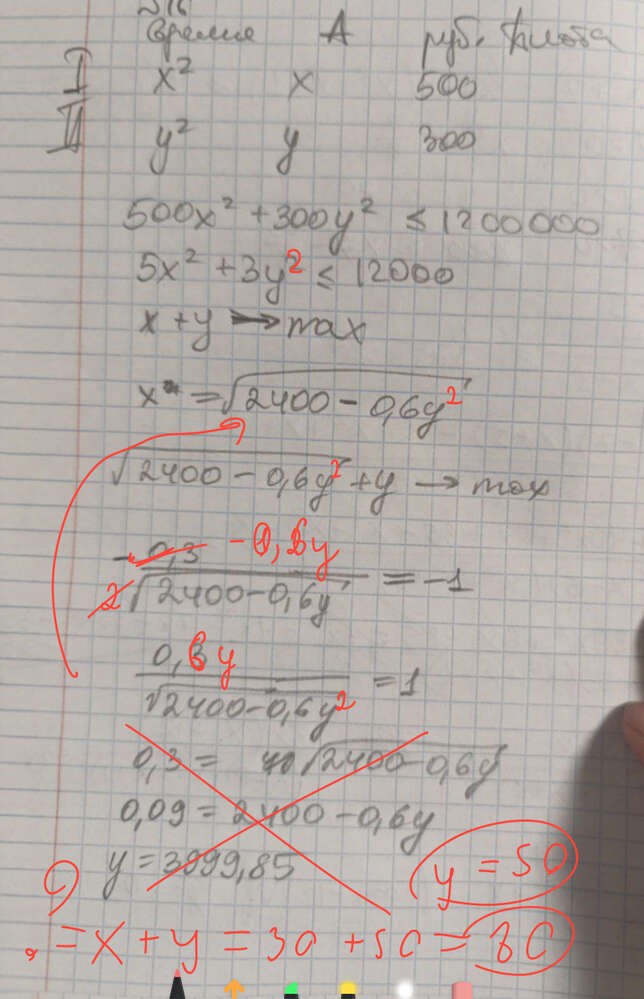 №16
время A руб. книга
I x² x 500
II y² y 300
500x² + 300y² ≤ 1200000
5x² + 3y² ≤ 12000
x + y → max
x = √2400 - 0,6y²
√2400 - 0,6y² + y → max
-0,3 -0,6y
2√2400-0,6y = -1
0,6y
√2400-0,6y² = 1
0,3 = √2400-0,6y
0,09 = 2400 - 0,6y
y = 3999,85
y = 50
= x + y = 30 + 50 = 80